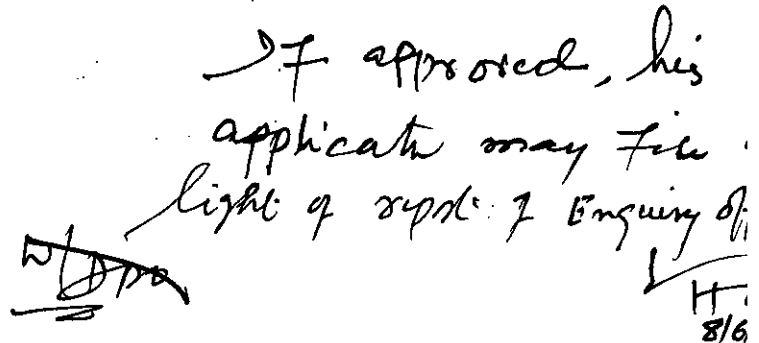 If approved, his
applicatn may File
light of repot: of Enquiry Of
W/DPO
H.
8/6